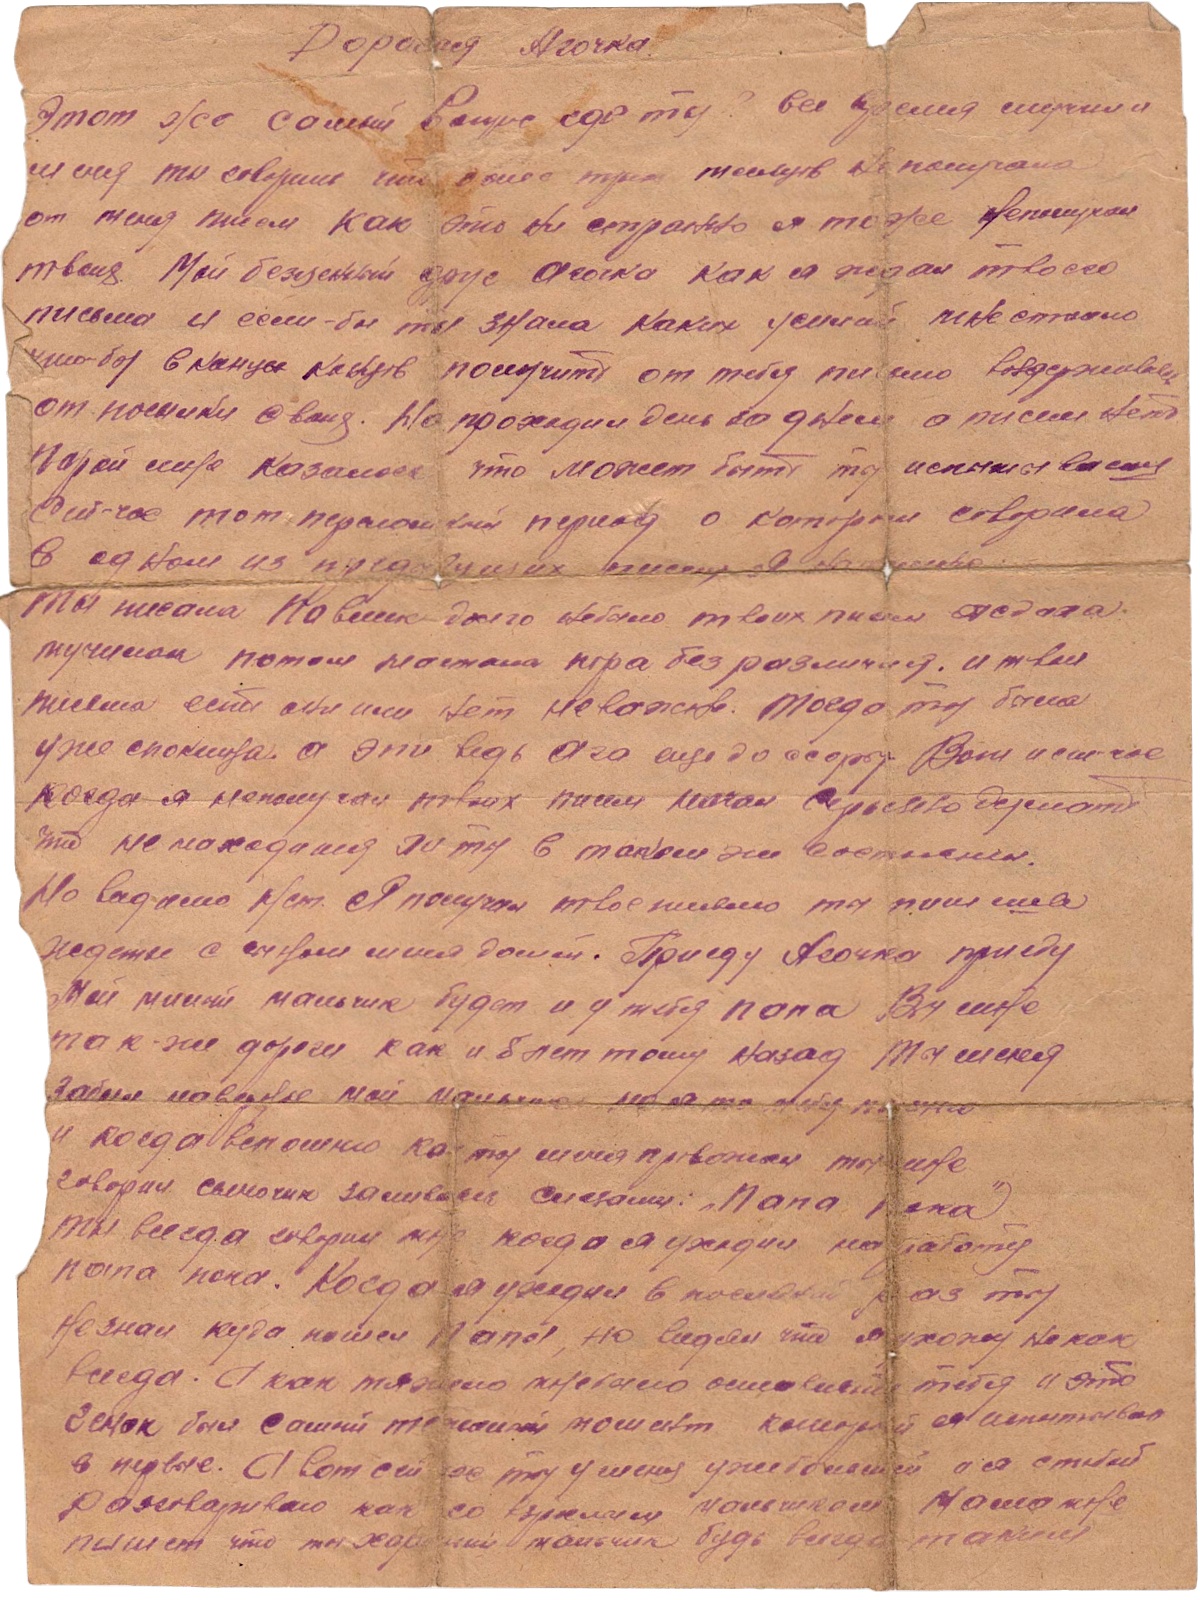 Дорогая Агочка.
Этот же самый вопрос где ты? все время мучил и
меня ты говоришь что более трех месяцев неполучала
от меня писем как это ни странно я тоже неполучал
твоих. Мой бесценный друг Агочка как я ждал твоего
письма и если-бы ты знала каких усилий мне стоило
что-бы в конце концов получить от тебя письмо
от посылки своих. Но проходил день за днем а писем нет
Порой мне казалось что может быть ты испытываешь
Сей-час тот переломный период о котором говорила
в одном из предыдущих писем.
Ты писала Павлик долго небыло твоих писем я ждала.
мучилась потом настала пора безразличия. и твои
письма есть они или нет неважно. Тогда ты была
уже спокойна. а это ведь Ага еще до ссоры. Вот и сей-час
когда я неполучал твоих писем начал серьезно думать
что не находишся ли ты в таком же состоянии.
Но видимо нет. Я получил твое письмо ты пишеш
ждете с сыном меня домой. Приеду Агочка приеду
Мой милый мальчик будет и у тебя папа Вы мне
так-же дороги как и 6 лет тому назад Ты меня
забыл наверное мой мальчик но я то тебя помню
и когда вспомню как ты меня провожал ты мне
говорил сыночик заливаясь слезами: „Папа пока"
Ты всегда говорил мне когда я уходил на работу
папа пока. Когда я уходил в последний раз ты
незнал куда пошел папа, но видел что я ухожу некак
всегда. А как тяжело мне было оставлять тебя и это
был самый тяжелый момент который я испытывал
в первые. А вот сейчас ты у меня уже большой и я с тобой
разговариваю как со взрослым мальчиком Мама мне
пишет что ты хороший мальчик будь всегда таким